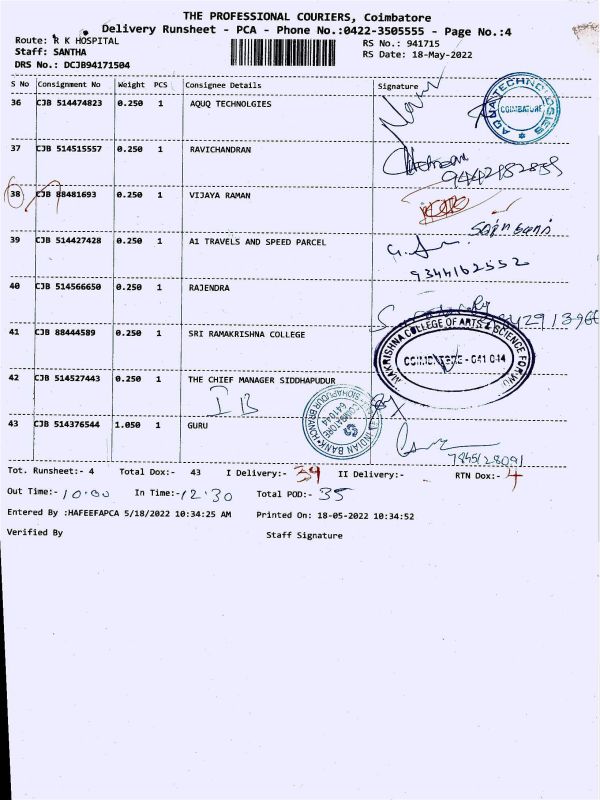 THE PROFESSIONAL COURIERS, Coimbatore
Delivery Runsheet - PCA - Phone No.:0422-3505555 - Page No.:4
Route: R K HOSPITAL
RS No.: 941715
Staff: SANTHA
RS Date: 18-May-2022
DRS No.: DCJB94171504
S No Consignment No Weight PCS Consignee Details Signature
36 CJB 514474823 0.250 1 AQUQ TECHNOLGIES
AQUA TECHNOLOGIES
COIMBATORE
37 CJB 514515557 0.250 1 RAVICHANDRAN
9442982859
38 CJB 88481693 0.250 1 VIJAYA RAMAN
39 CJB 514427428 0.250 1 A1 TRAVELS AND SPEED PARCEL
9344162552
40 CJB 514566650 0.250 1 RAJENDRA
41 CJB 88444589 0.250 1 SRI RAMAKRISHNA COLLEGE
MAKRISHNA COLLEGE OF ARTS & SCIENCE FOR WO
COIMBATORE - 641 044
42 CJB 514527443 0.250 1 THE CHIEF MANAGER SIDDHAPUDUR
IB
INDIAN BANK
COIMBATORE
43 CJB 514376544 1.050 1 GURU
Tot. Runsheet:- 4 Total Dox:- 43 I Delivery:- 39 II Delivery:- RTN Dox:- 4
Out Time:- 10.00 In Time:- 12.30 Total POD:- 35
Entered By :HAFEEFAPCA 5/18/2022 10:34:25 AM Printed On: 18-05-2022 10:34:52
Verified By Staff Signature